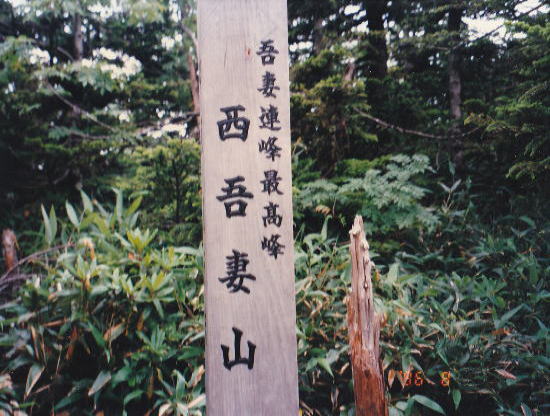 吾妻連峰最高峰
西吾妻山
'95. 8